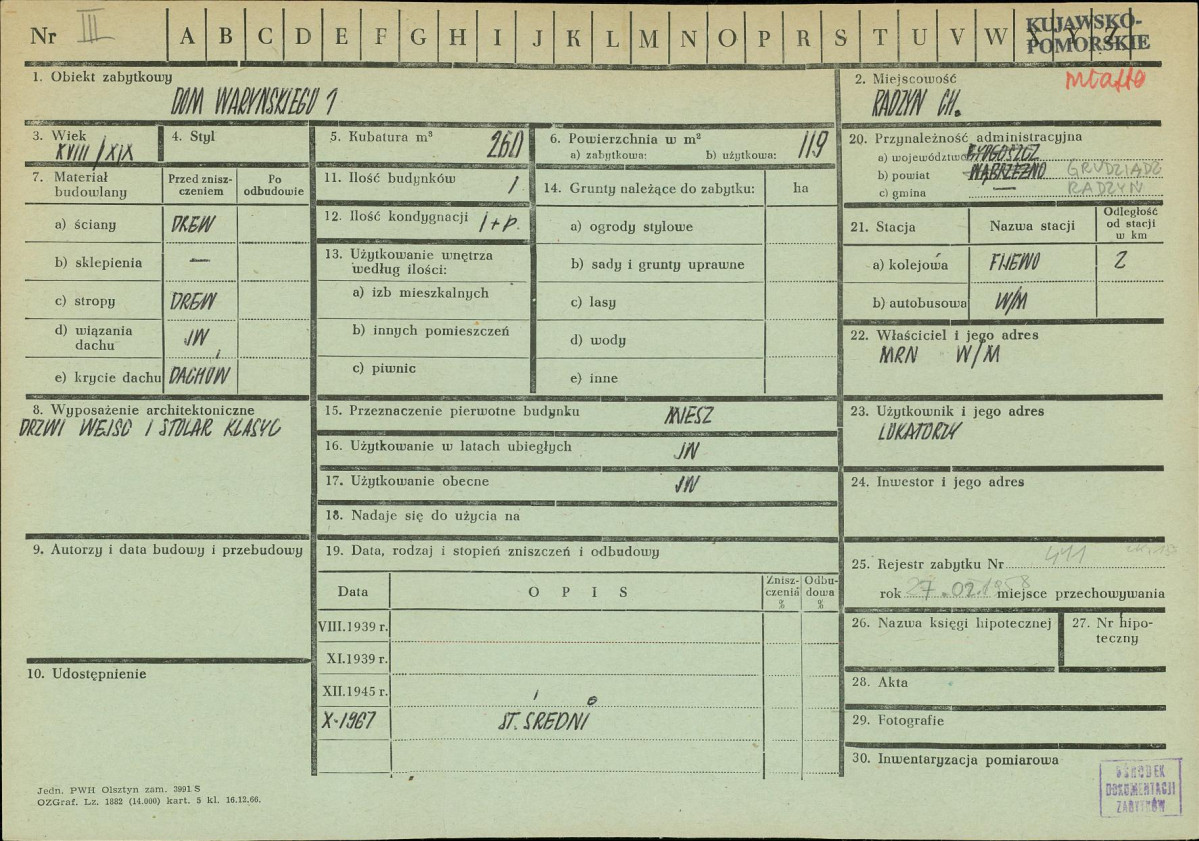 Nr III A B C D E F G H I J K L M N O P R S T U V W X Y Z
KUJAWSKO-
POMORSKIE
1. Obiekt zabytkowy
DOM WARYNSKIEGO 1
2. Miejscowość
miasto
RADZYN CH.
3. Wiek
XVIII/XIX
4. Styl
5. Kubatura m³ 260
6. Powierzchnia w m²
a) zabytkowa: b) użytkowa: 119
20. Przynależność administracyjna
a) województwo BYDGOSZCZ
b) powiat WĄBRZEŹNO GRUDZIĄDZ
c) gmina — RADZYN
7. Materiał budowlany
Przed zniszczeniem
Po odbudowie
a) ściany DREW
b) sklepienia —
c) stropy DREW
d) wiązania dachu JW
e) krycie dachu DACHÓW
11. Ilość budynków 1
12. Ilość kondygnacji 1+p.
13. Użytkowanie wnętrza według ilości:
a) izb mieszkalnych
b) innych pomieszczeń
c) piwnic
14. Grunty należące do zabytku: ha
a) ogrody stylowe
b) sady i grunty uprawne
c) lasy
d) wody
e) inne
21. Stacja
Nazwa stacji
Odległość od stacji w km
a) kolejowa FIJEWO 2
b) autobusowa W/M
22. Właściciel i jego adres
MRN W/M
8. Wyposażenie architektoniczne
DRZWI WEJSC I STOLAR KLASYC
15. Przeznaczenie pierwotne budynku MIESZ
16. Użytkowanie w latach ubiegłych JW
17. Użytkowanie obecne JW
18. Nadaje się do użycia na
23. Użytkownik i jego adres
LOKATORZY
24. Inwestor i jego adres
9. Autorzy i data budowy i przebudowy
10. Udostępnienie
19. Data, rodzaj i stopień zniszczeń i odbudowy
Data
O P I S
Zniszczenia %
Odbudowa %
VIII.1939 r.
XI.1939 r.
XII.1945 r.
X-1967 ST. ŚREDNI
25. Rejestr zabytku Nr 411
rok 27.02.1958 miejsce przechowywania
26. Nazwa księgi hipotecznej
27. Nr hipoteczny
28. Akta
29. Fotografie
30. Inwentaryzacja pomiarowa
OŚRODEK
DOKUMENTACJI
ZABYTKÓW
Jedn. PWH Olsztyn zam. 3991 S
OZGraf. Lz. 1882 (14.000) kart. 5 kl. 16.12.66.